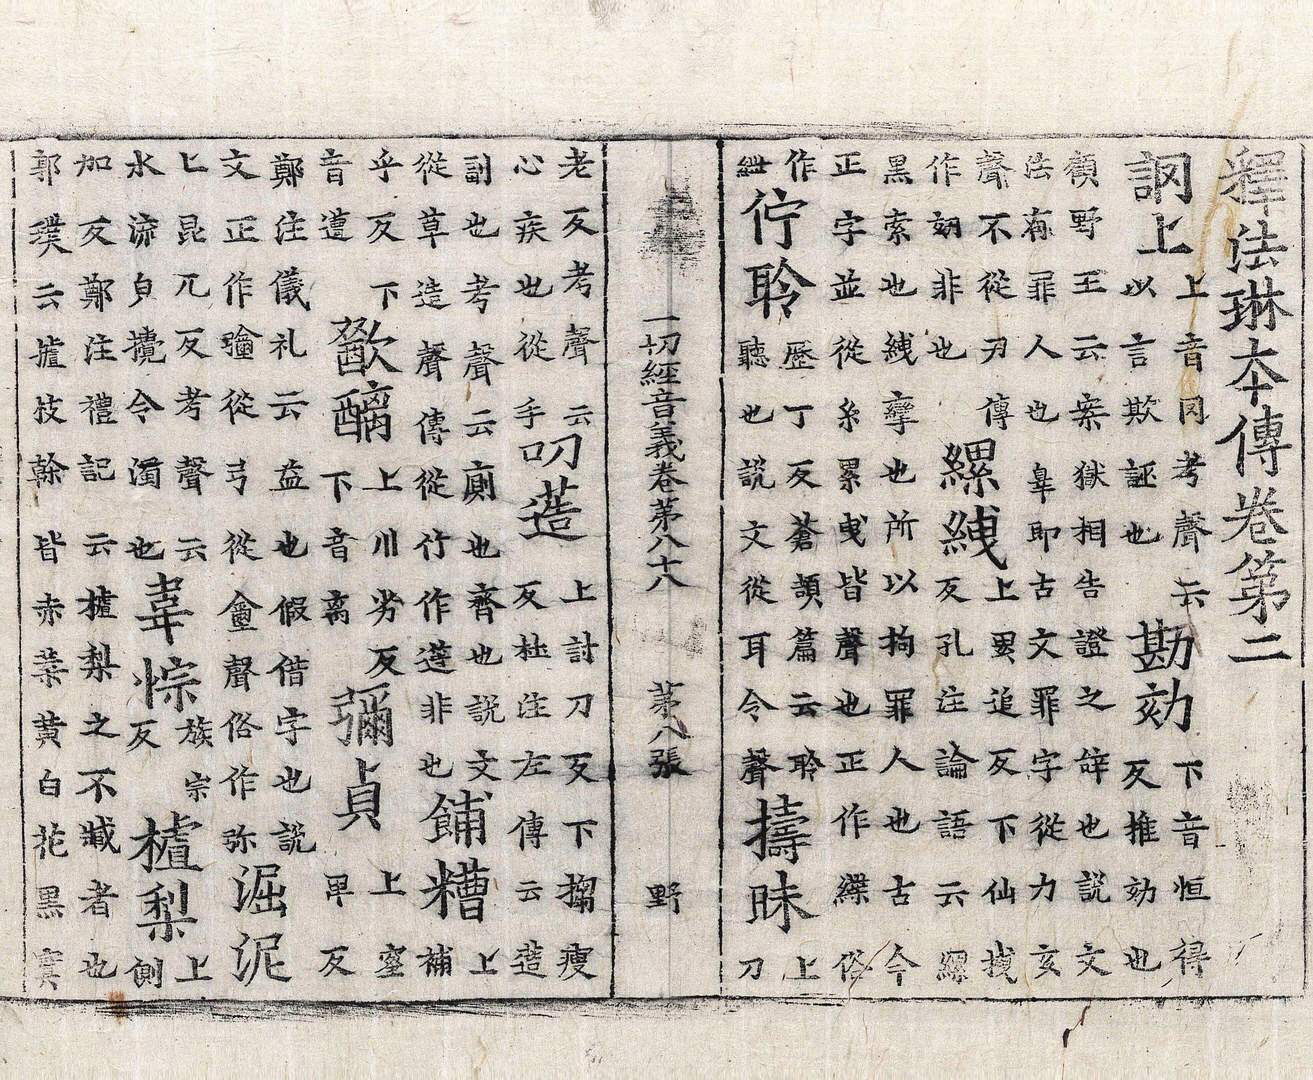 釋法琳本傳卷第二
訶上上音冈考聲云以言欺誣也勘劾下音恒得反推劾也
顧野王云案獄相告證之辝也說文
法有罪人也辠即古文罪字從力亥
聲不從刃傳作劾非也縲絏上累追反下仙拽反孔注論語云縲
黑索也絏孿也所以拘罪人也古今
正字並從糸累曳皆聲也正作緤俗
作紲佇聆歷丁反蒼頡篇云聆聽也說文從耳令聲擣昧上刀
一切經音義卷第八十八 第八張 野
老反考聲云心疾也從手叨簉上討刀反下搊瘦反杜注左傳云簉
副也考聲云廁也齊也說文從草造聲傳從竹作簉非也餔糟上補
乎反下音遭歠醨上川劣反下音离彌貞上蜜卑反
鄭注儀礼云益也假借字也說
文正作從弓從聲俗作弥淈泥
匕昆兀反考聲云水流皃攪令濁也韋悰族宗反樝梨上側
加反鄭注禮記云樝梨之不臧者也
郭璞云樝枝幹皆赤葉黄白花黑實